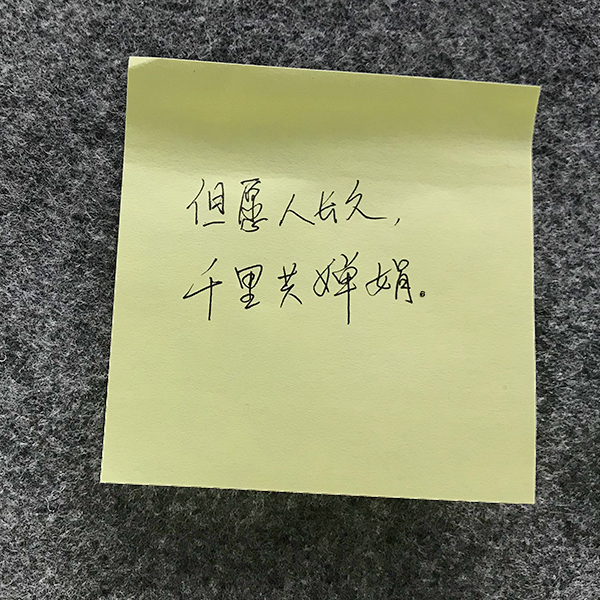 但愿人长久,
千里共婵娟。